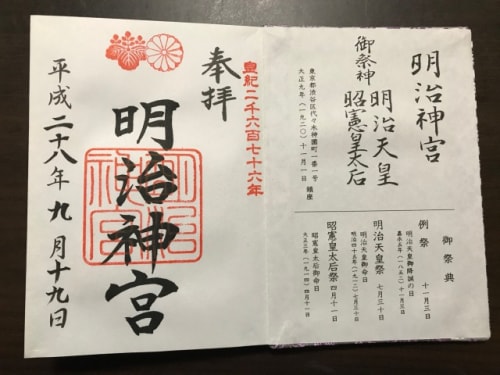 明治神宮
御祭神
明治天皇
昭憲皇太后
東京都渋谷区代々木神園町一番一号
大正九年(一九二〇)十一月一日 鎮座
御祭典
例祭 十一月三日
明治天皇御降誕の日
嘉永五年(一八五二)十一月三日
明治天皇祭 七月三十日
明治天皇御命日
明治四十五年(一九一二)七月三十日
昭憲皇太后祭 四月十一日
昭憲皇太后御命日
大正三年(一九一四)四月十一日
皇紀二千六百七十六年
奉拝
明治神宮
明治神宮
平成二十八年九月十九日